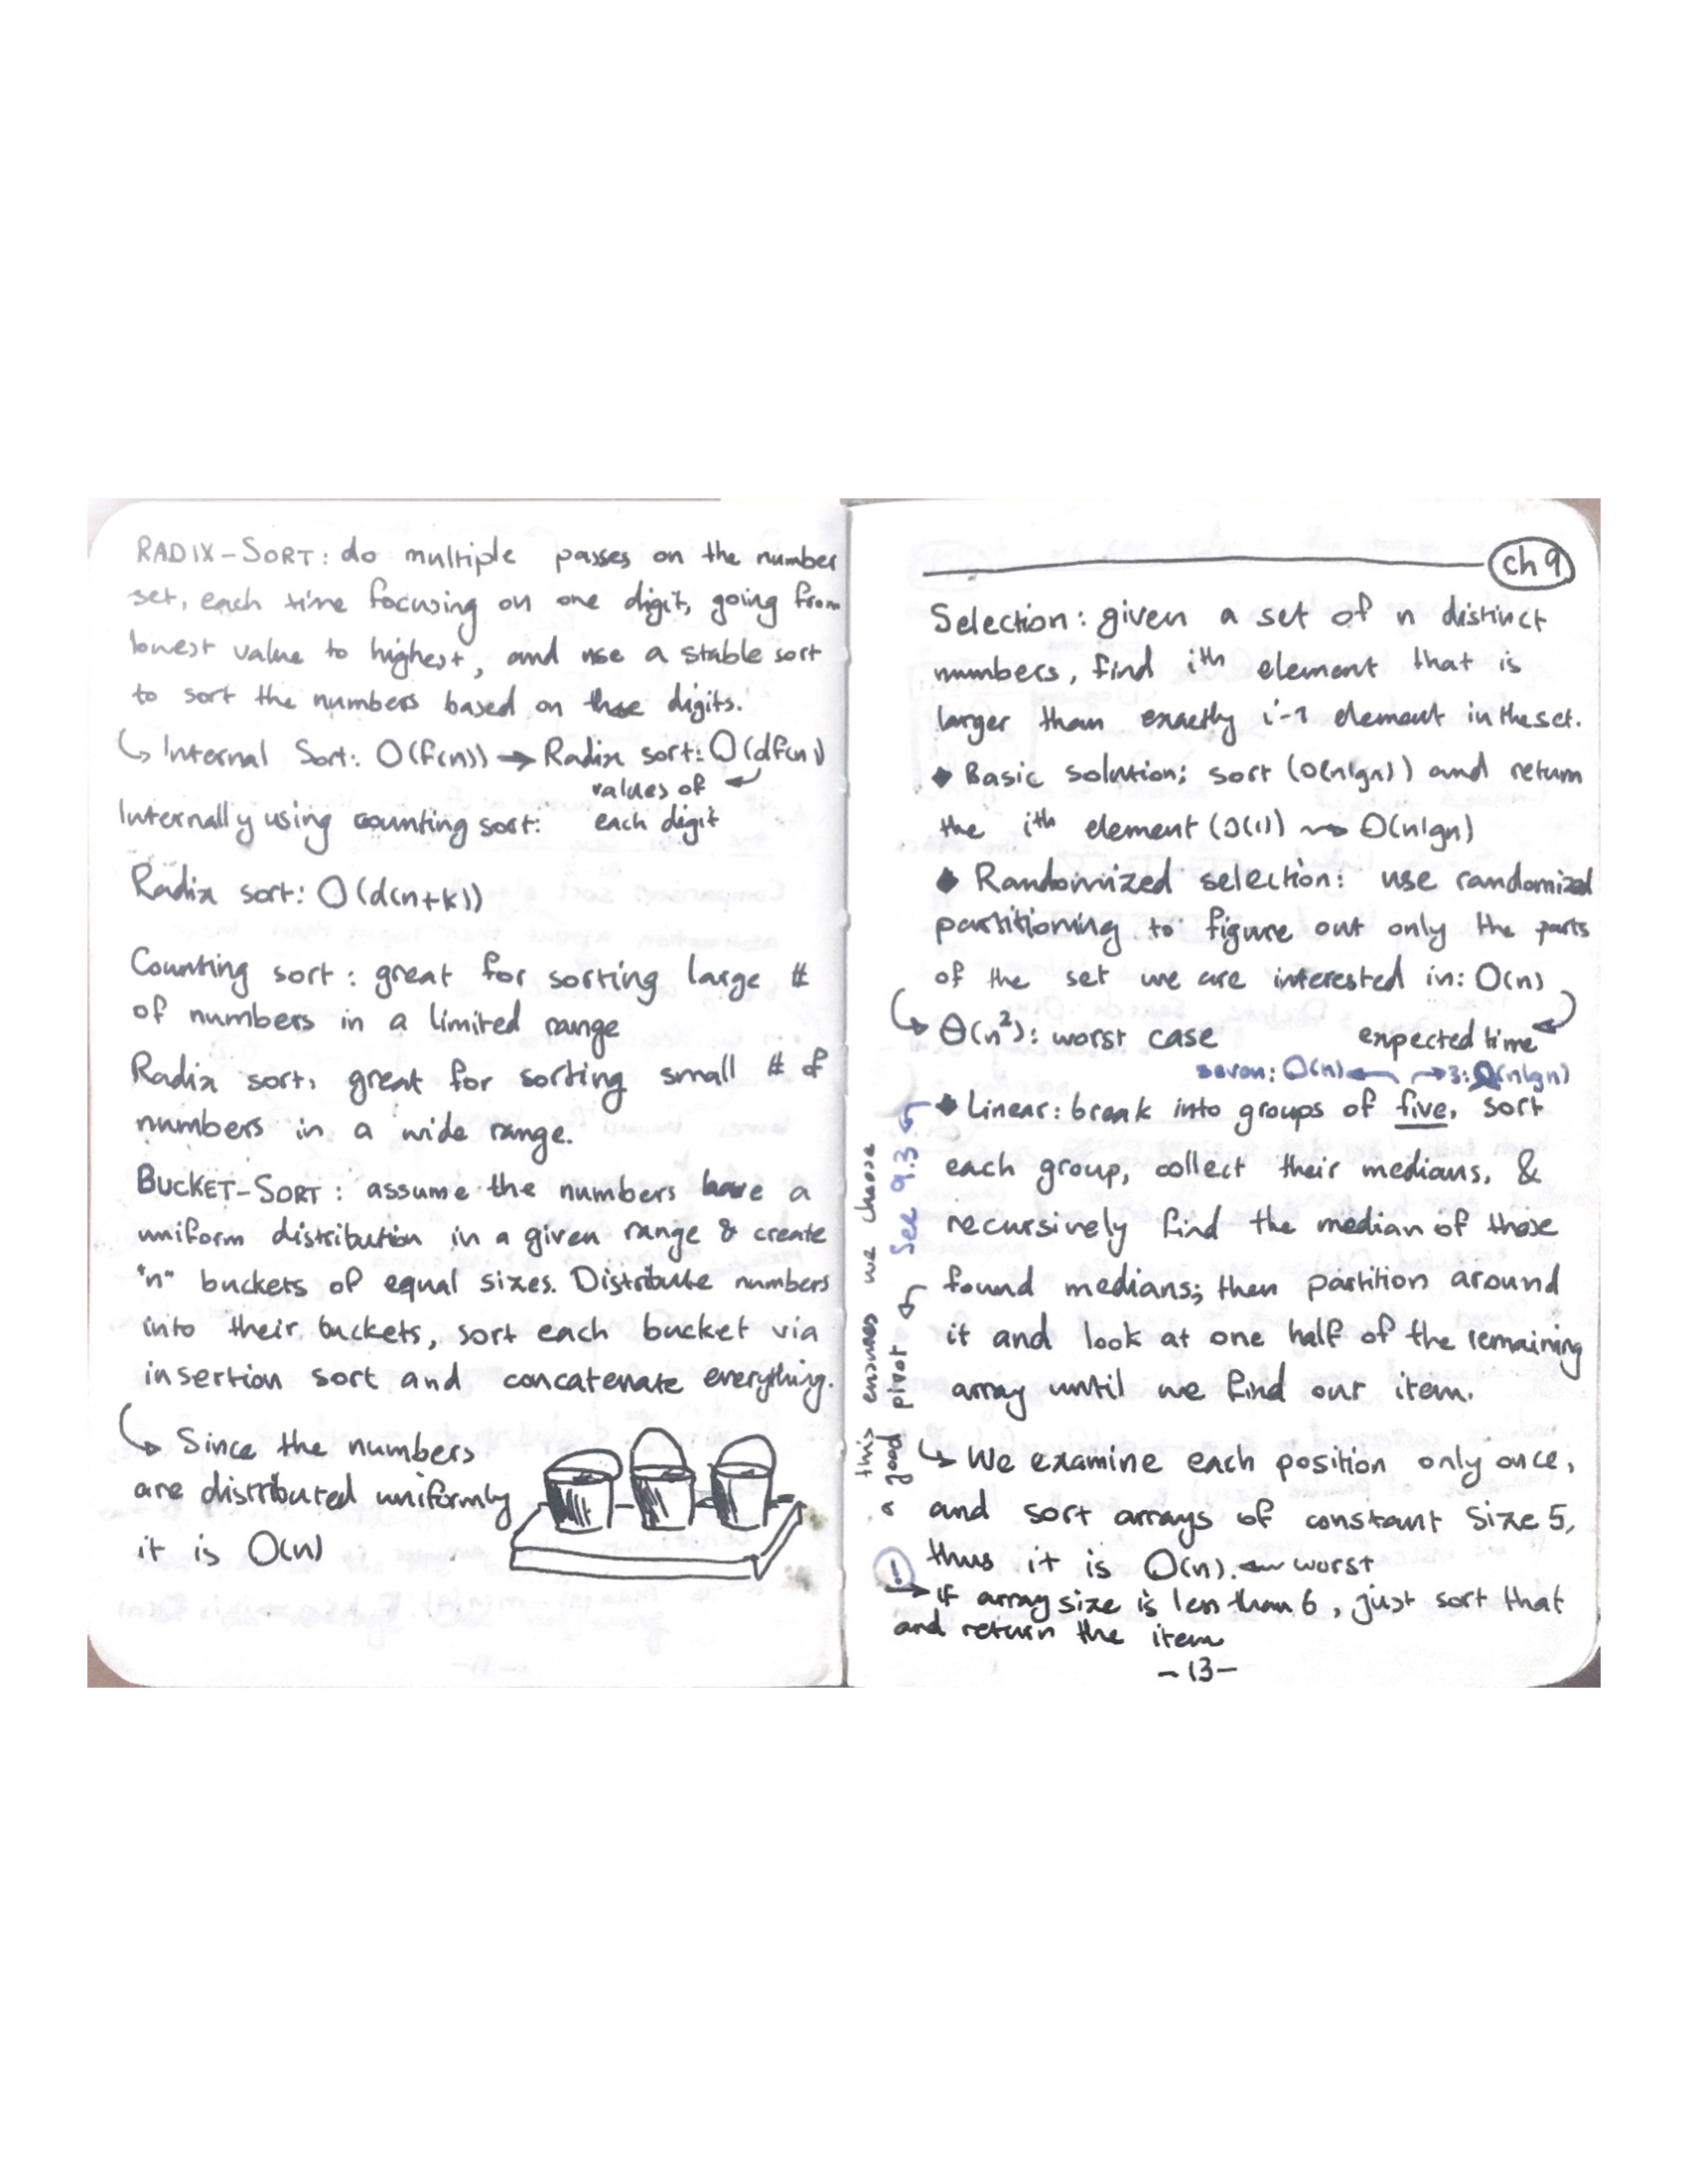 RADIX-SORT: do multiple passes on the number
set, each time focusing on one digit, going from
lowest value to highest, and use a stable sort
to sort the numbers based on those digits.
↳ Internal Sort: O(f(n)) → Radix sort: O(df(n))
values of
Internally using counting sort: each digit
Radix sort: O(d(n+k))
Counting sort: great for sorting large #
of numbers in a limited range
Radix sort: great for sorting small # of
numbers in a wide range.
BUCKET-SORT: assume the numbers have a
uniform distribution in a given range & create
"n" buckets of equal sizes. Distribute numbers
into their buckets, sort each bucket via
insertion sort and concatenate everything.
↳ Since the numbers
are distributed uniformly
it is O(n)
ch 9
Selection: given a set of n distinct
numbers, find ith element that is
larger than exactly i-1 element in the set.
◆ Basic solution; sort (O(nlgn)) and return
the ith element (O(1)) ⇝ O(nlgn)
◆ Randomized selection: use randomized
partitioning to figure out only the parts
of the set we are interested in: O(n)
↳ Θ(n²): worst case expected time
seven: O(n) ← → 3: Ω(nlgn)
◆ Linear: break into groups of five, sort
each group, collect their medians, &
recursively find the median of those
found medians; then partition around
it and look at one half of the remaining
array until we find our item.
See 9.3
this ensures we choose
a good pivot
↳ We examine each position only once,
and sort arrays of constant size 5,
thus it is O(n). ← worst
! → if array size is less than 6, just sort that
and return the item
-13-